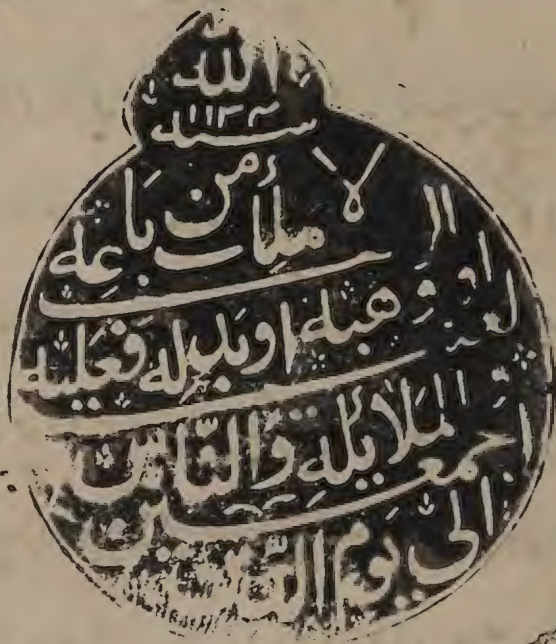 الله
سنه ١١٣٤
من باعه
او هبه او بدله فعليه
لعنة
الملائكة والناس
اجمعين
الى يوم الدين